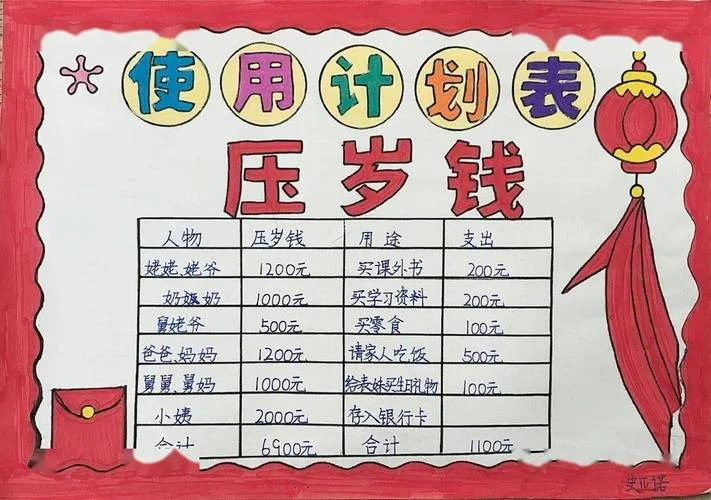 使用计划表
压岁钱
人物 压岁钱 用途 支出
姥姥、姥爷 1200元 买课外书 200元
奶奶 1000元 买学习资料 200元
舅姥爷 500元 买零食 100元
爸爸、妈妈 1200元 请家人吃饭 500元
舅舅、舅妈 1000元 给表妹买生日礼物 100元
小姨 2000元 存入银行卡
合计 6900元 合计 1100元